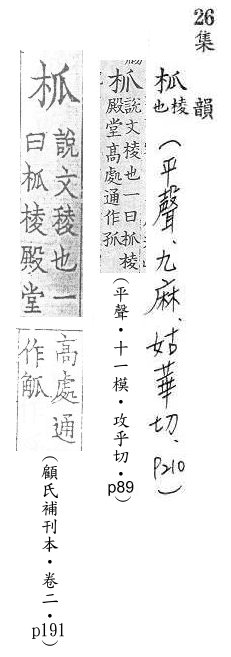 26
集韻
柧 棱也(平聲、九麻、姑華切、p210)
柧 說文棱也一曰柧棱
殿堂高處通作觚
(平聲・十一模・攻乎切・p89)
柧 說文棱也一
曰柧棱殿堂
高處通
作觚
(顧氏補刊本・卷二・p191)